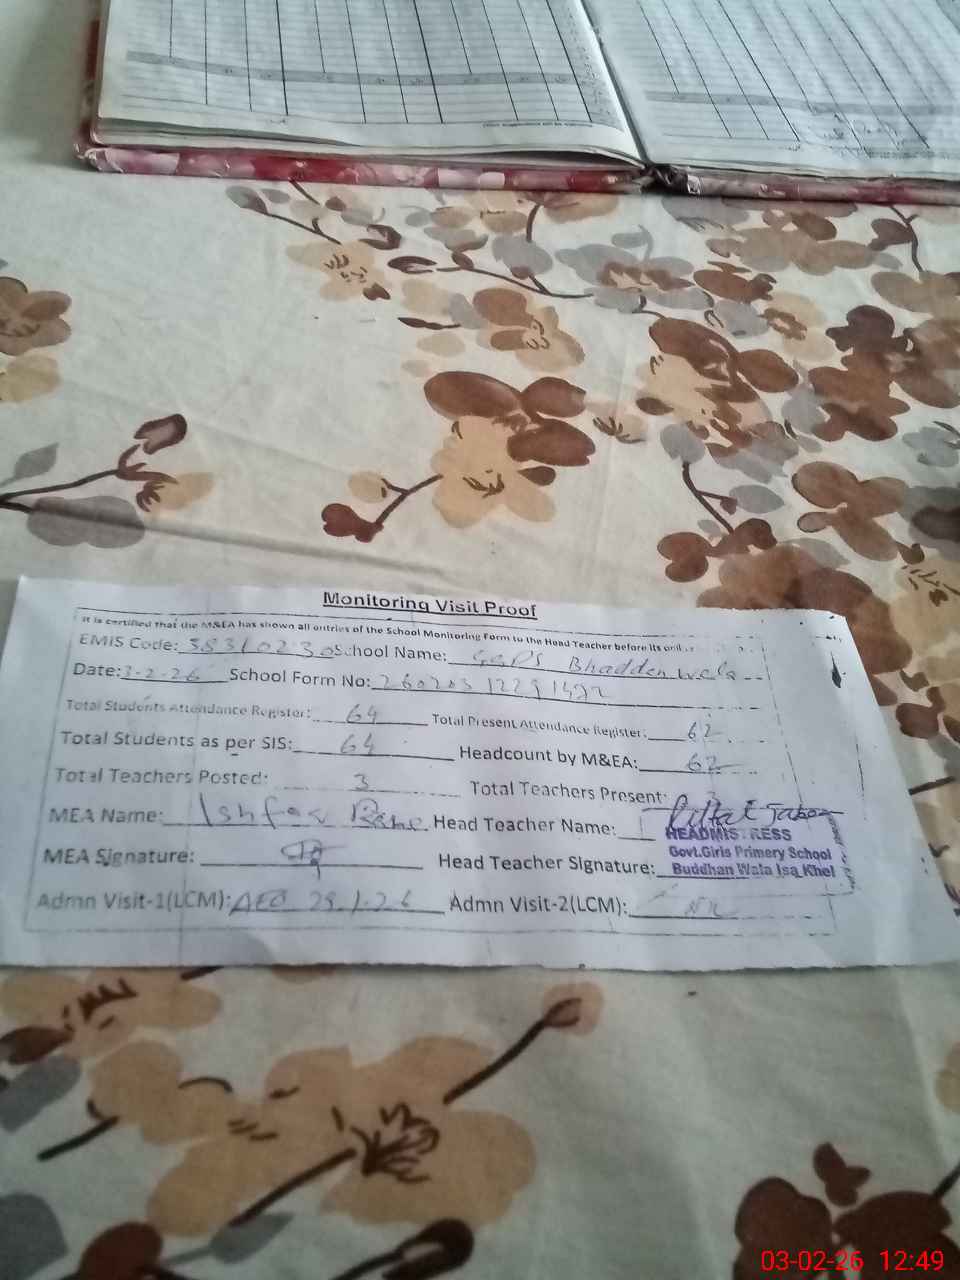 Monitoring Visit Proof
It is certified that the M&EA has shown all entries of the School Monitoring Form to the Head Teacher before its
EMIS Code: 38310230 School Name: GGPS Bhadden wela
Date: 3-2-26 School Form No: 260203
Total Students Attendance Register: 64 Total Present Attendance Register: 62
Total Students as per SIS: 64 Headcount by M&EA: 62
Total Teachers Posted: 3 Total Teachers Present: 3
MEA Name: Ishfaq Head Teacher Name:
HEADMISTRESS
Govt.Girls Primery School
Buddhan Wala Isa Khel
MEA Signature: Head Teacher Signature:
Admn Visit-1(LCM): AEO 29.1.26 Admn Visit-2(LCM): Nil
03-02-26 12:49